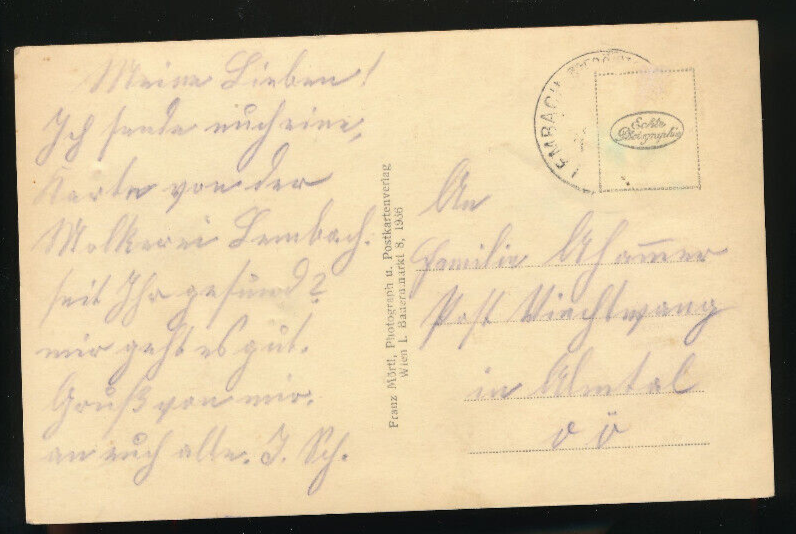 Meine Lieben!
Ich sende euch eine,
Karte von der
Molkerei Lembach.
seit Ihr gesund?
mir geht es gut.
Gruß von mir.
an euch alle. J. Sch.
Franz Mörtl, Photograph u. Postkartenverlag
Wien I. Bauernmarkt 8, 1936
LEMBACH
Echte
Photographie
An
Familie Ahammer
Post Viechtwang
in Almtal
O Ö